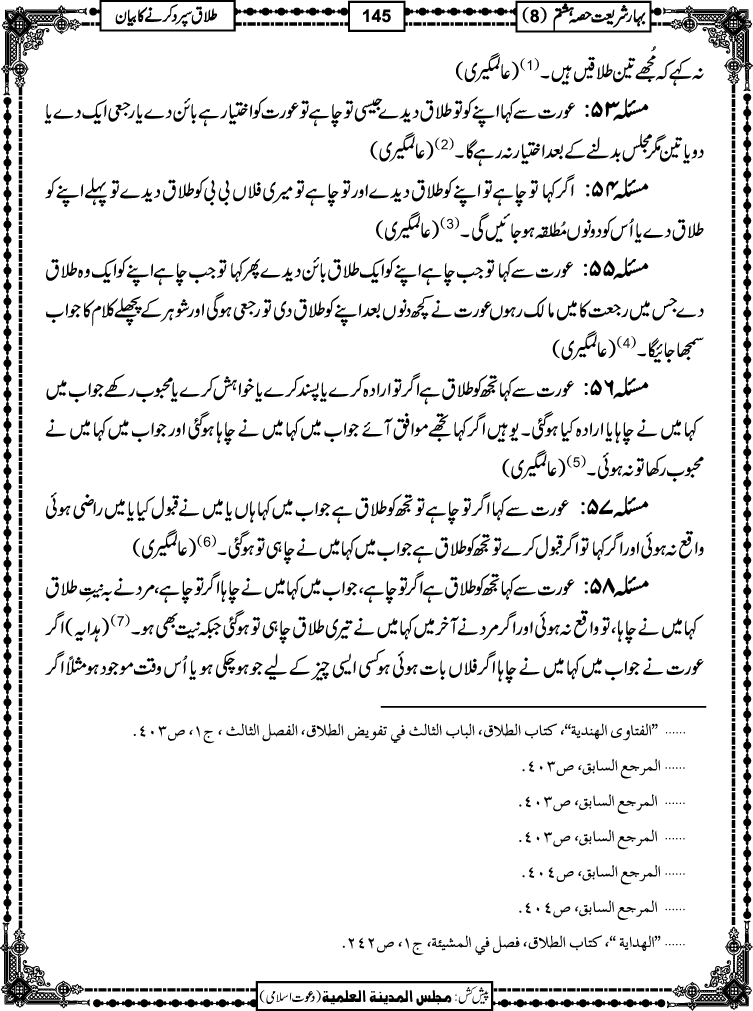 بہار شریعت حصہ ہشتم (8)
145
طلاق سپرد کرنے کا بیان
نہ کہے کہ مُجھے تین طلاقیں ہیں۔(1) (عالمگیری)
مسئلہ ۵۳: عورت سے کہا اپنے کو تو طلاق دیدے جیسی تو چاہے تو عورت کو اختیار ہے بائن دے یا رجعی ایک دے یا
دو یا تین مگر مجلس بدلنے کے بعد اختیار نہ رہے گا۔(2) (عالمگیری)
مسئلہ ۵۴: اگر کہا تو چاہے تو اپنے کو طلاق دیدے اور تو چاہے تو میری فلاں بی بی کو طلاق دیدے تو پہلے اپنے کو
طلاق دے یا اُس کو دونوں مُطلقہ ہو جائیں گی۔(3) (عالمگیری)
مسئلہ ۵۵: عورت سے کہا تو جب چاہے اپنے کو ایک طلاق بائن دیدے پھر کہا تو جب چاہے اپنے کو ایک وہ طلاق
دے جس میں رجعت کا میں مالک رہوں عورت نے کچھ دنوں بعد اپنے کو طلاق دی تو رجعی ہوگی اور شوہر کے پچھلے کلام کا جواب
سمجھا جائیگا۔(4) (عالمگیری)
مسئلہ ۵۶: عورت سے کہا تجھ کو طلاق ہے اگر تو ارادہ کرے یا پسند کرے یا خواہش کرے یا محبوب رکھے جواب میں
کہا میں نے چاہا یا ارادہ کیا ہوگئی۔ یوہیں اگر کہا تجھے موافق آئے جواب میں کہا میں نے چاہا ہوگئی اور جواب میں کہا میں نے
محبوب رکھا تو نہ ہوئی۔(5) (عالمگیری)
مسئلہ ۵۷: عورت سے کہا اگر تو چاہے تو تجھ کو طلاق ہے جواب میں کہا ہاں یا میں نے قبول کیا یا میں راضی ہوئی
واقع نہ ہوئی اور اگر کہا تو اگر قبول کرے تو تجھ کو طلاق ہے جواب میں کہا میں نے چاہی تو ہوگئی۔(6) (عالمگیری)
مسئلہ ۵۸: عورت سے کہا تجھ کو طلاق ہے اگر تو چاہے، جواب میں کہا میں نے چاہا اگر تو چاہے، مرد نے بہ نیتِ طلاق
کہا میں نے چاہا، تو واقع نہ ہوئی اور اگر مرد نے آخر میں کہا میں نے تیری طلاق چاہی تو ہوگئی جبکہ نیت بھی ہو۔(7) (ہدایہ) اگر
عورت نے جواب میں کہا میں نے چاہا اگر فلاں بات ہوئی ہو کسی ایسی چیز کے لیے جو ہو چکی ہو یا اُس وقت موجود ہو مثلاً اگر
...... ”الفتاوی الھندیة“، کتاب الطلاق، الباب الثالث في تفویض الطلاق، الفصل الثالث ، ج۱، ص٤٠٣.
...... المرجع السابق، ص٤٠٣.
...... المرجع السابق، ص٤٠٣.
...... المرجع السابق، ص٤٠٣.
...... المرجع السابق، ص٤٠٤.
...... المرجع السابق، ص٤٠٤.
...... ”الھدایة “، کتاب الطلاق، فصل في المشیئة، ج۱، ص٢٤٢.
پیش کش: مجلس المدینة العلمیة (دعوت اسلامی)